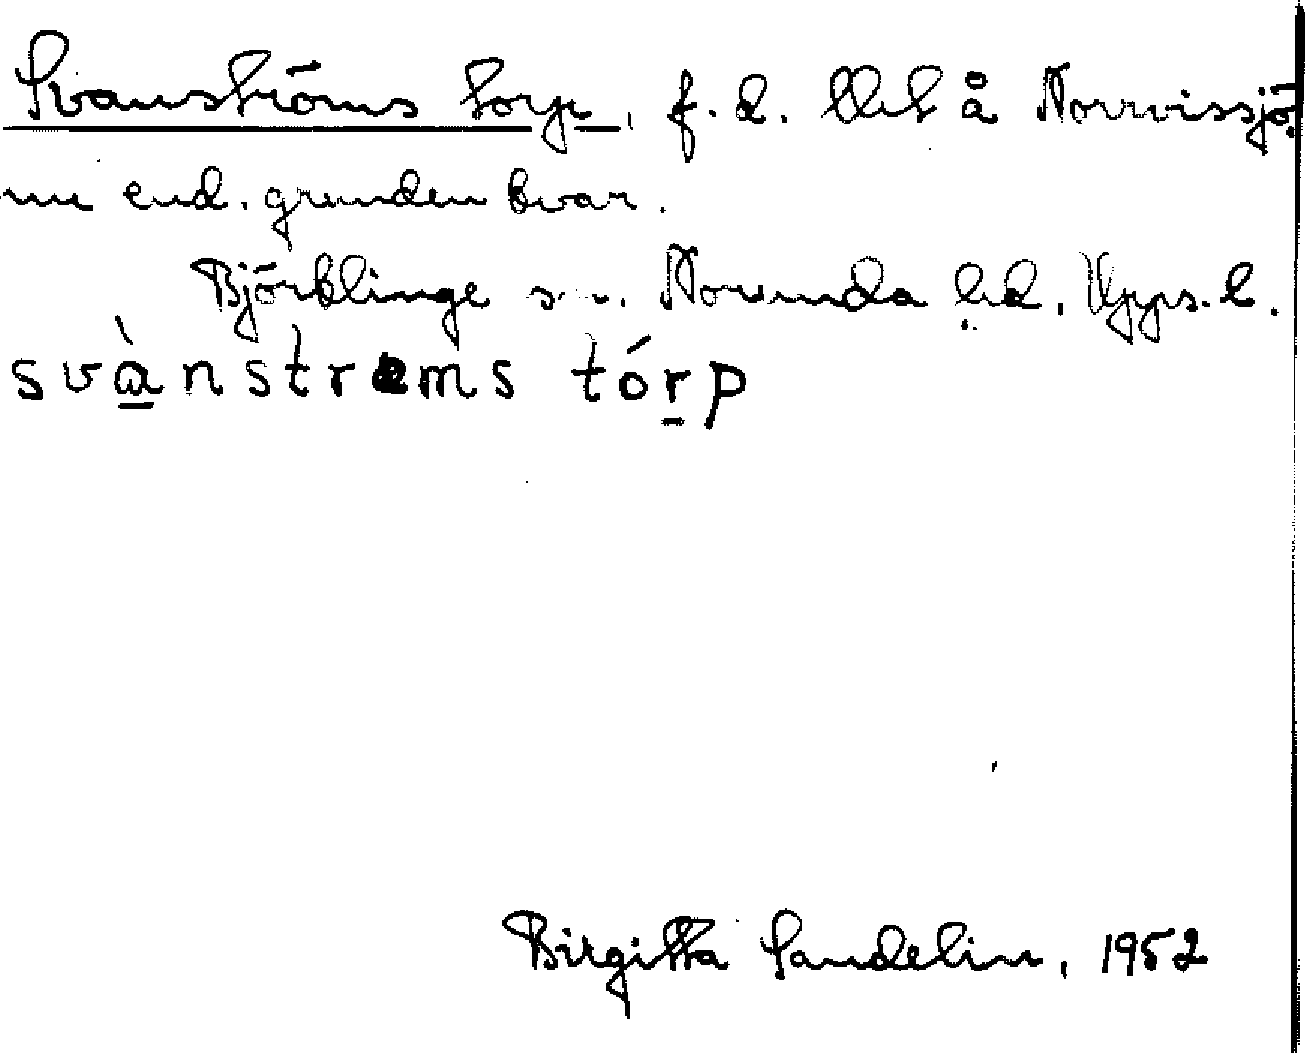 Svanströms torp, f.d. lht å Norrvissjö,
nu end. grunden kvar.
Björklinge sn. Norunda hd. Upps. l.
svànstrəms tórp
Birgitta Sandelin, 1952